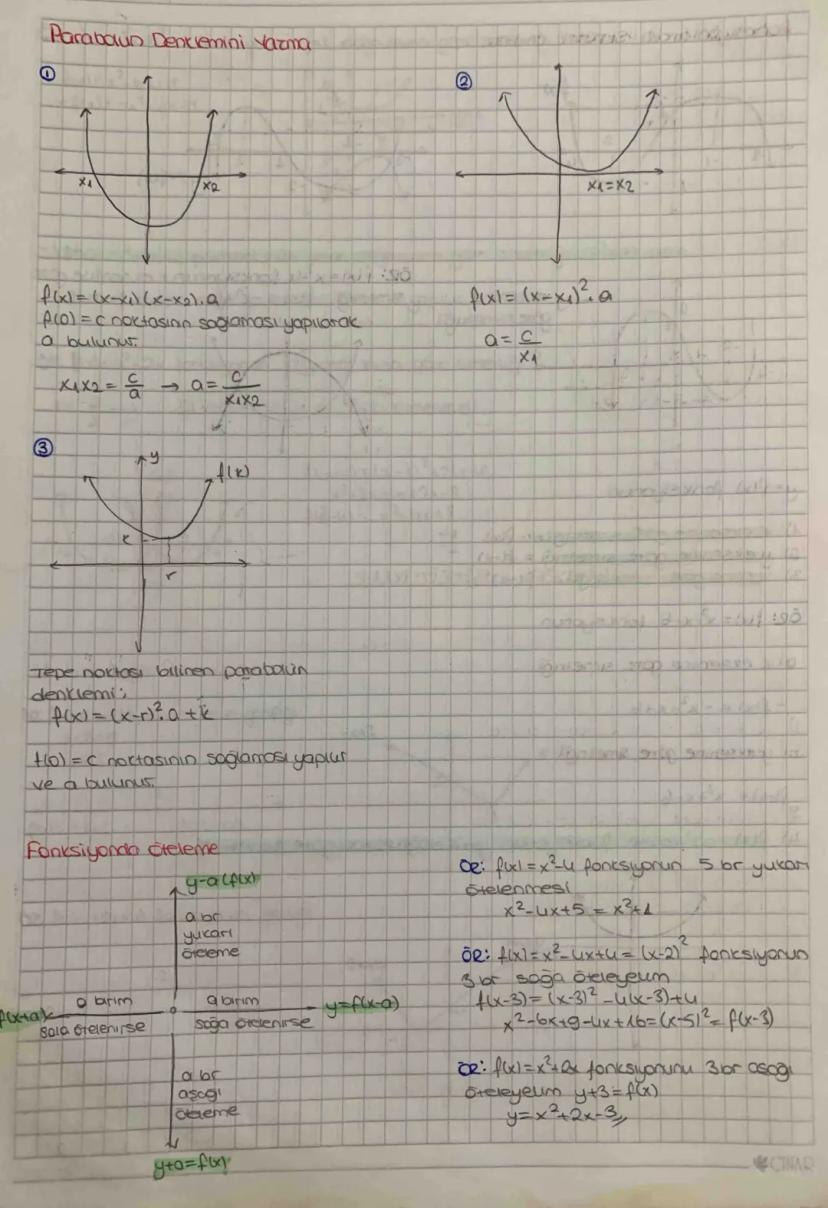 Parabolün Denklemini Yazma
①
x1
x2
f(x)=(x-x1)(x-x2).a
f(0)=c noktasının sağlaması yapılarak
a bulunur.
x1x2 = c/a → a = c/x1x2
②
x1=x2
f(x)=(x-x1)².a
a = c/x1
③
y
f(x)
k
r
Tepe noktası bilinen parabolün
denklemi;
f(x)=(x-r)².a+k
f(0)=c noktasının sağlaması yapılır
ve a bulunur.
Fonksiyonda öteleme
y-a=f(x)
a br
yukarı
öteleme
f(x+a)
a birim
sola ötelenirse
a birim
sağa ötelenirse
y=f(x-a)
a br
aşağı
öteleme
y+a=f(x)
ÖR: f(x)=x²-4 fonksiyonun 5 br yukarı
ötelenmesi
x²-4x+5 = x²+1
ÖR: f(x)=x²-4x+4=(x-2)² fonksiyonun
3 br sağa öteleyelim
f(x-3)=(x-3)²-4(x-3)+4
x²-6x+9-4x+16=(x-5)²=f(x-3)
ÖR: f(x)=x²+2x fonksiyonunu 3 br aşağı
öteleyelim y+3=f(x)
y=x²+2x-3
ÇINAR